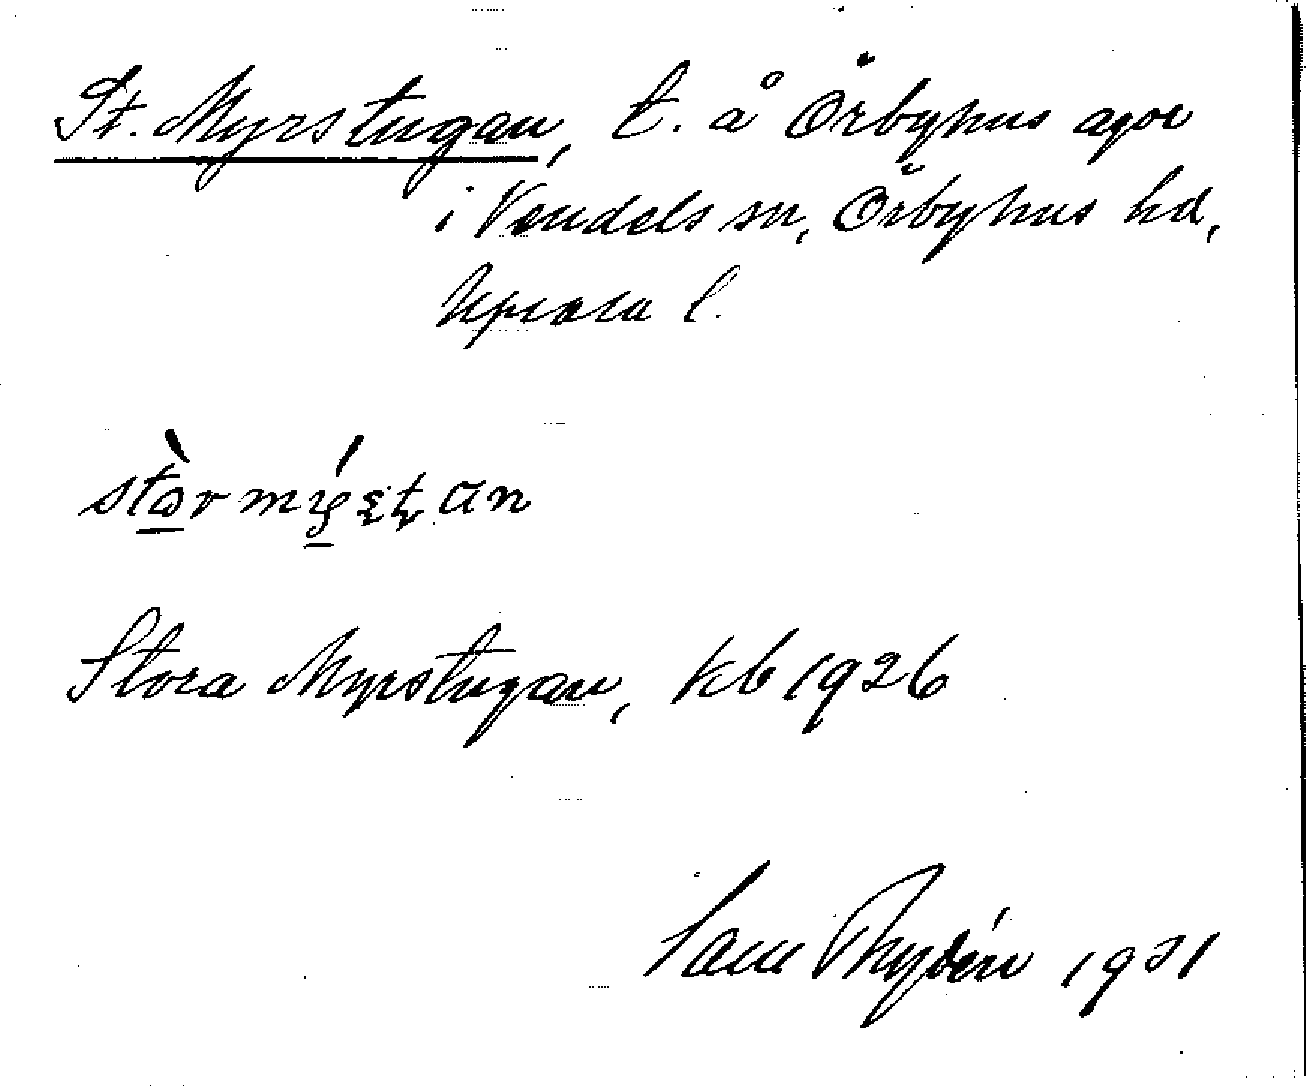 St. Myrstugan, t. å Örbyhus ägor
i Vendels sn, Örbyhus hd,
Uppsala l.
Stora Myrstugan, Kb 1926
Rydén 1931